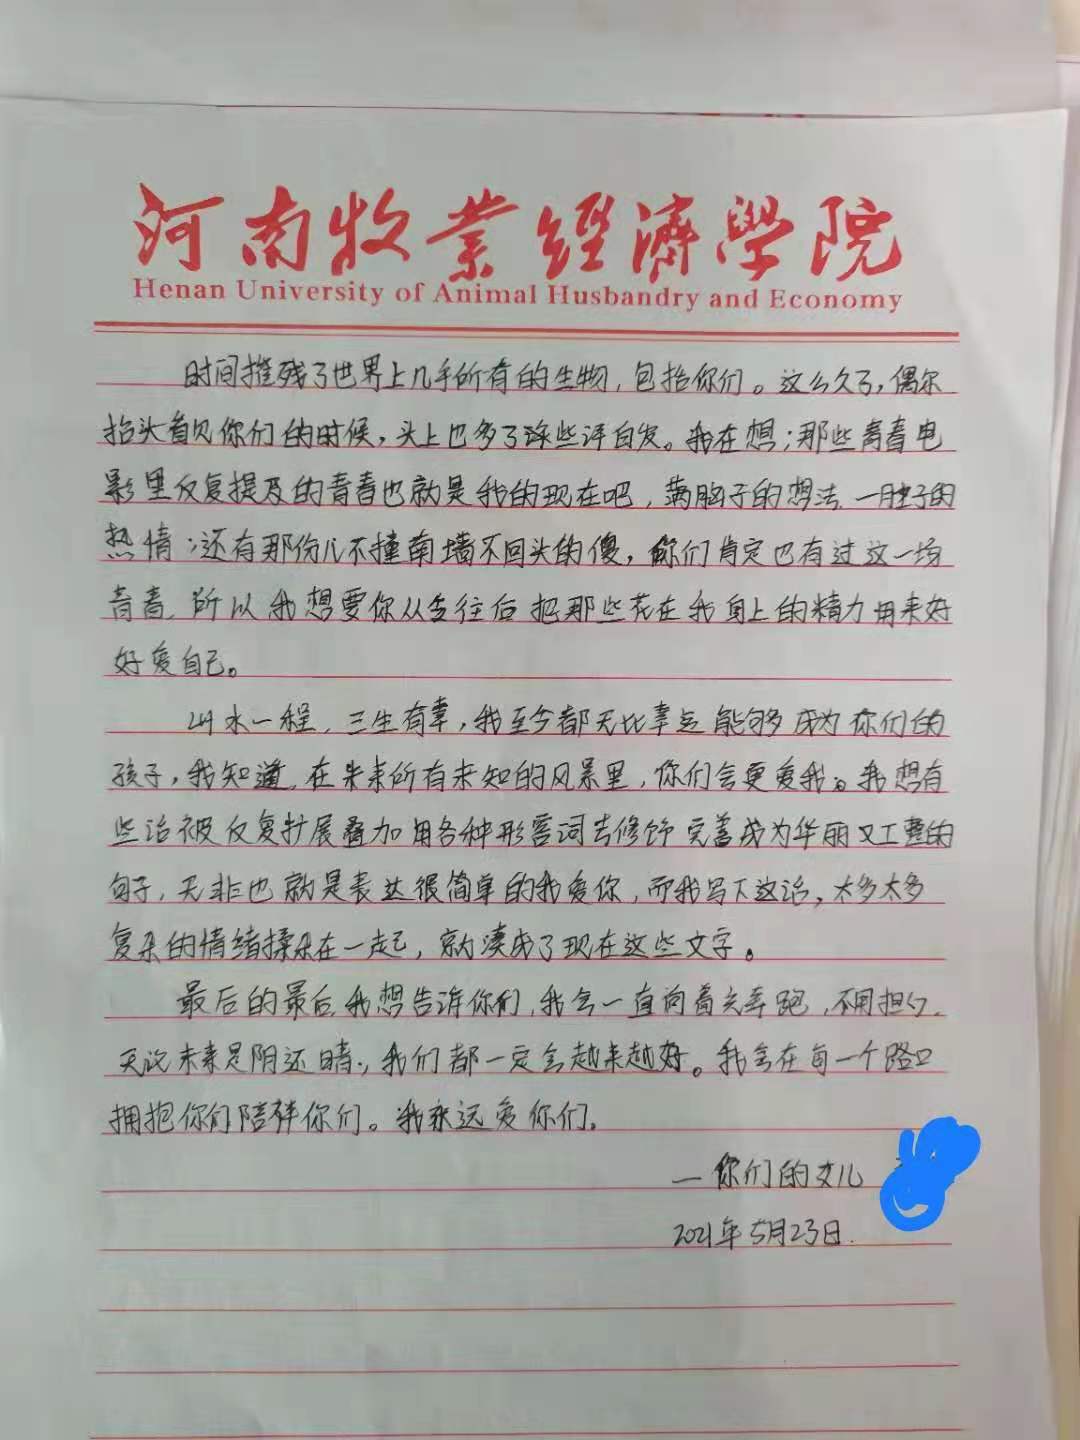 河南牧業經濟學院
Henan University of Animal Husbandry and Economy
时间摧残了世界上几乎所有的生物，包括你们。这么久了，偶尔
抬头看见你们的时候，头上也多了许白发。我在想；那些青春电
影里反复提及的青春也就是我的现在吧，满脑子的想法 一腔子的
热情；还有那份儿不撞南墙不回头的傻，你们肯定也有过这一场
青春，所以我想要你从今往后把那些花在我身上的精力用来好
好爱自己。
山水一程，三生有幸，我至今都无比幸运能够成为你们的
孩子，我知道，在未来所有未知的风景里，你们会更爱我。我想有
些话被反复扩展叠加用各种形容词去修饰完善成为华丽又工整的
句子，无非也就是表达很简单的我爱你，而我写下这话，太多太多
复杂的情绪揉杂在一起，就凑成了现在这些文字。
最后的最后，我想告诉你们，我会一直向着光奔跑，不用担心，
无论未来是阴还晴，我们都一定会越来越好。我会在每一个路口
拥抱你们陪伴你们。我永远爱你们。
—你们的女儿
2021年5月23日.